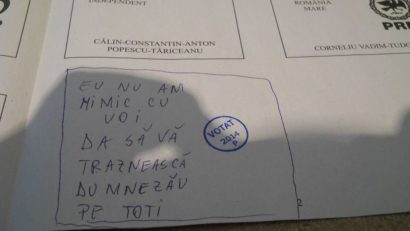 INDEPENDENT
CĂLIN-CONSTANTIN-ANTON
POPESCU-TĂRICEANU
ROMÂNIA
MARE
PR
CORNELIU VADIM-TUDO
EU NU AM
NIMIC CU
VOI
DA SĂ VĂ
TRAZNEASCĂ
DUMNEZĂU
PE TOTI
VOTAT
2014
P
2